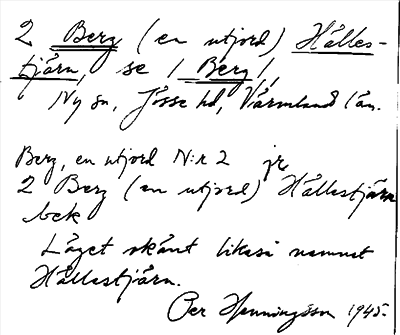 2 Berg (en utjord) Hålles-
tjärn, se / Berg /,
Ny sn, Jösse hd, Värmland län.
Berg, en utjord N:r 2 jr
2 Berg (en utjord) Hållestjärn
bek
Läget okänt likaså namnet
Hållestjärn.
Per Henningsson 1945.